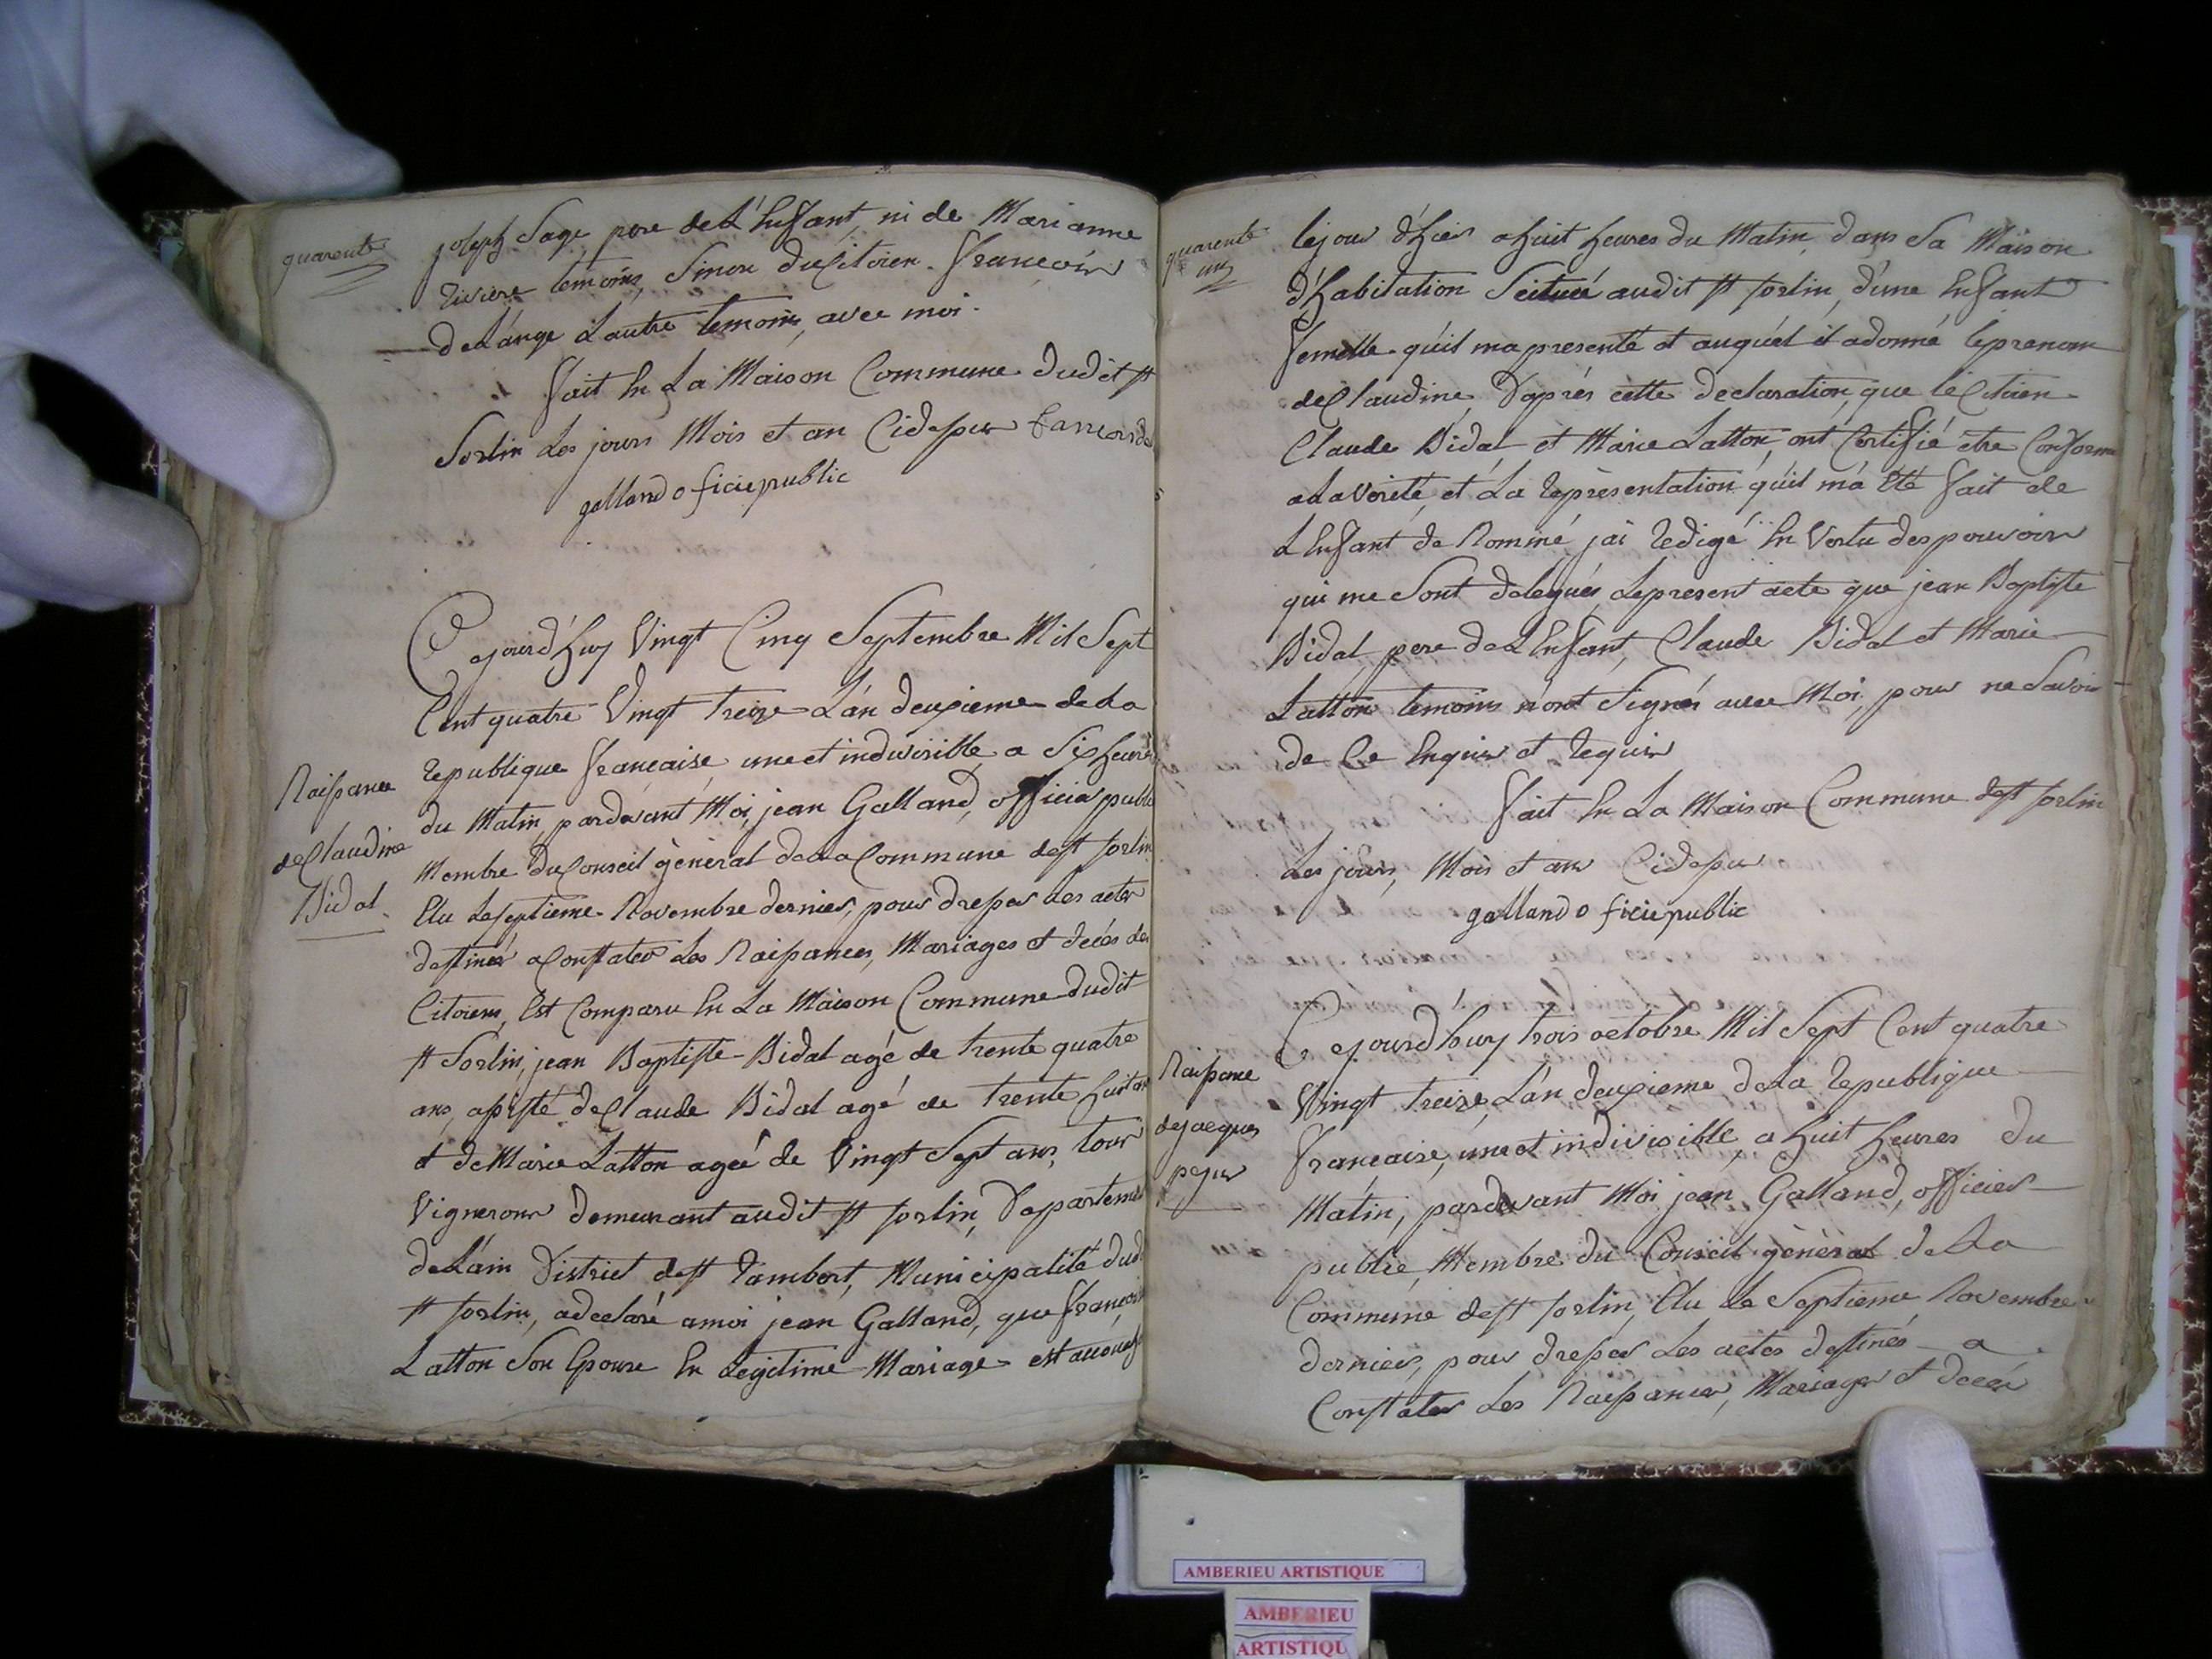 quarente
joseph Sage pere de L'Enfant, ni de Marianne
Riviere temoins, Sinon du Citoien francois
deLange L'autre temoin, avec moi.
fait En La Maison Commune dudit St
Sorlin Les jours Mois et an Cidessus francois de
galland oficiepublic
Naissance
de Claudine
Bidal
Cejourd'huy Vingt Cinq Septembre Mil Sept
Cent quatre Vingt treize L'an deuxieme de La
Republique francaise, une et indivisible a Six heures
du Matin, pardevant Moi, jean Galland, officier public
Membre du Conseil gènèral de La Commune de St Sorlin
Elu Le septieme Novembre dernier, pour dresser Les actes
destinés a Constater Les Naissances, Mariages et decés des
Citoiens, Est Comparu En La Maison Commune dudit
St Sorlin, jean Baptiste Bidal agé de trente quatre
ans, assisté de Claude Bidal agé de trente huit ans
et de Marie Latton ageé de Vingt Sept ans, tous
Vignerons demeurant audit St Sorlin, Departement
de L'ain District de St Rambert, Municipalité dudit
St Sorlin, a declaré a moi jean Galland, que françoise
Latton Son Epouse En Legitime Mariage est accouché
quarente
un
le jour d'hier a huit heures du Matin, dans Sa Maison
d'habitation Scituée audit St Sorlin, d'une Enfant
femelle qu'il ma presenté et auquel il a donné le prenom
de Claudine, D'aprés cette declaration, que le Citoien
Claude Bidal et Marie Latton, ont Certifié etre Conforme
a La Verité, et La representation qu'il m'a Eté fait de
L'Enfant de Nommé, j'ai Redigé En Vertu des pouvoirs
qui me Sont delegués, Le present acte que jean Baptiste
Bidal pere de L'Enfant, Claude Bidal et Marie
Latton temoins n'ont Signés avec Moi, pour ne Savoir
de Ce Enquis et Requis
fait En La Maison Commune de St Sorlin
Les jours, Mois et an Cidessus
galland oficiepublic
Naissance
de jacques
Cejourd'huy trois octobre Mil Sept Cent quatre
Vingt treize, L'an deuxieme de La Republique
francaise, une et indivisible, a huit heures du
Matin, pardevant Moi jean Galland, officier
public, Membre du Conseil gènèral de La
Commune de St Sorlin, Elu Le Septieme Novembre
dernier, pour dresser Les actes destinés a
Constater Les Naissances, Mariages et decés
AMBERIEU ARTISTIQUE
AMBERIEU
ARTISTIQU